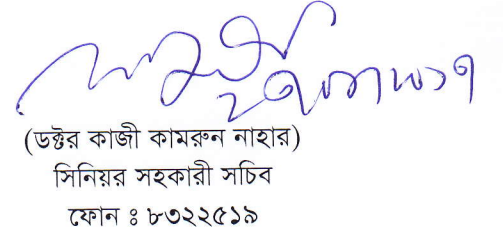 (ডক্টর কাজী কামরুন নাহার)
সিনিয়র সহকারী সচিব
ফোন ঃ ৮৩২২৫১৯